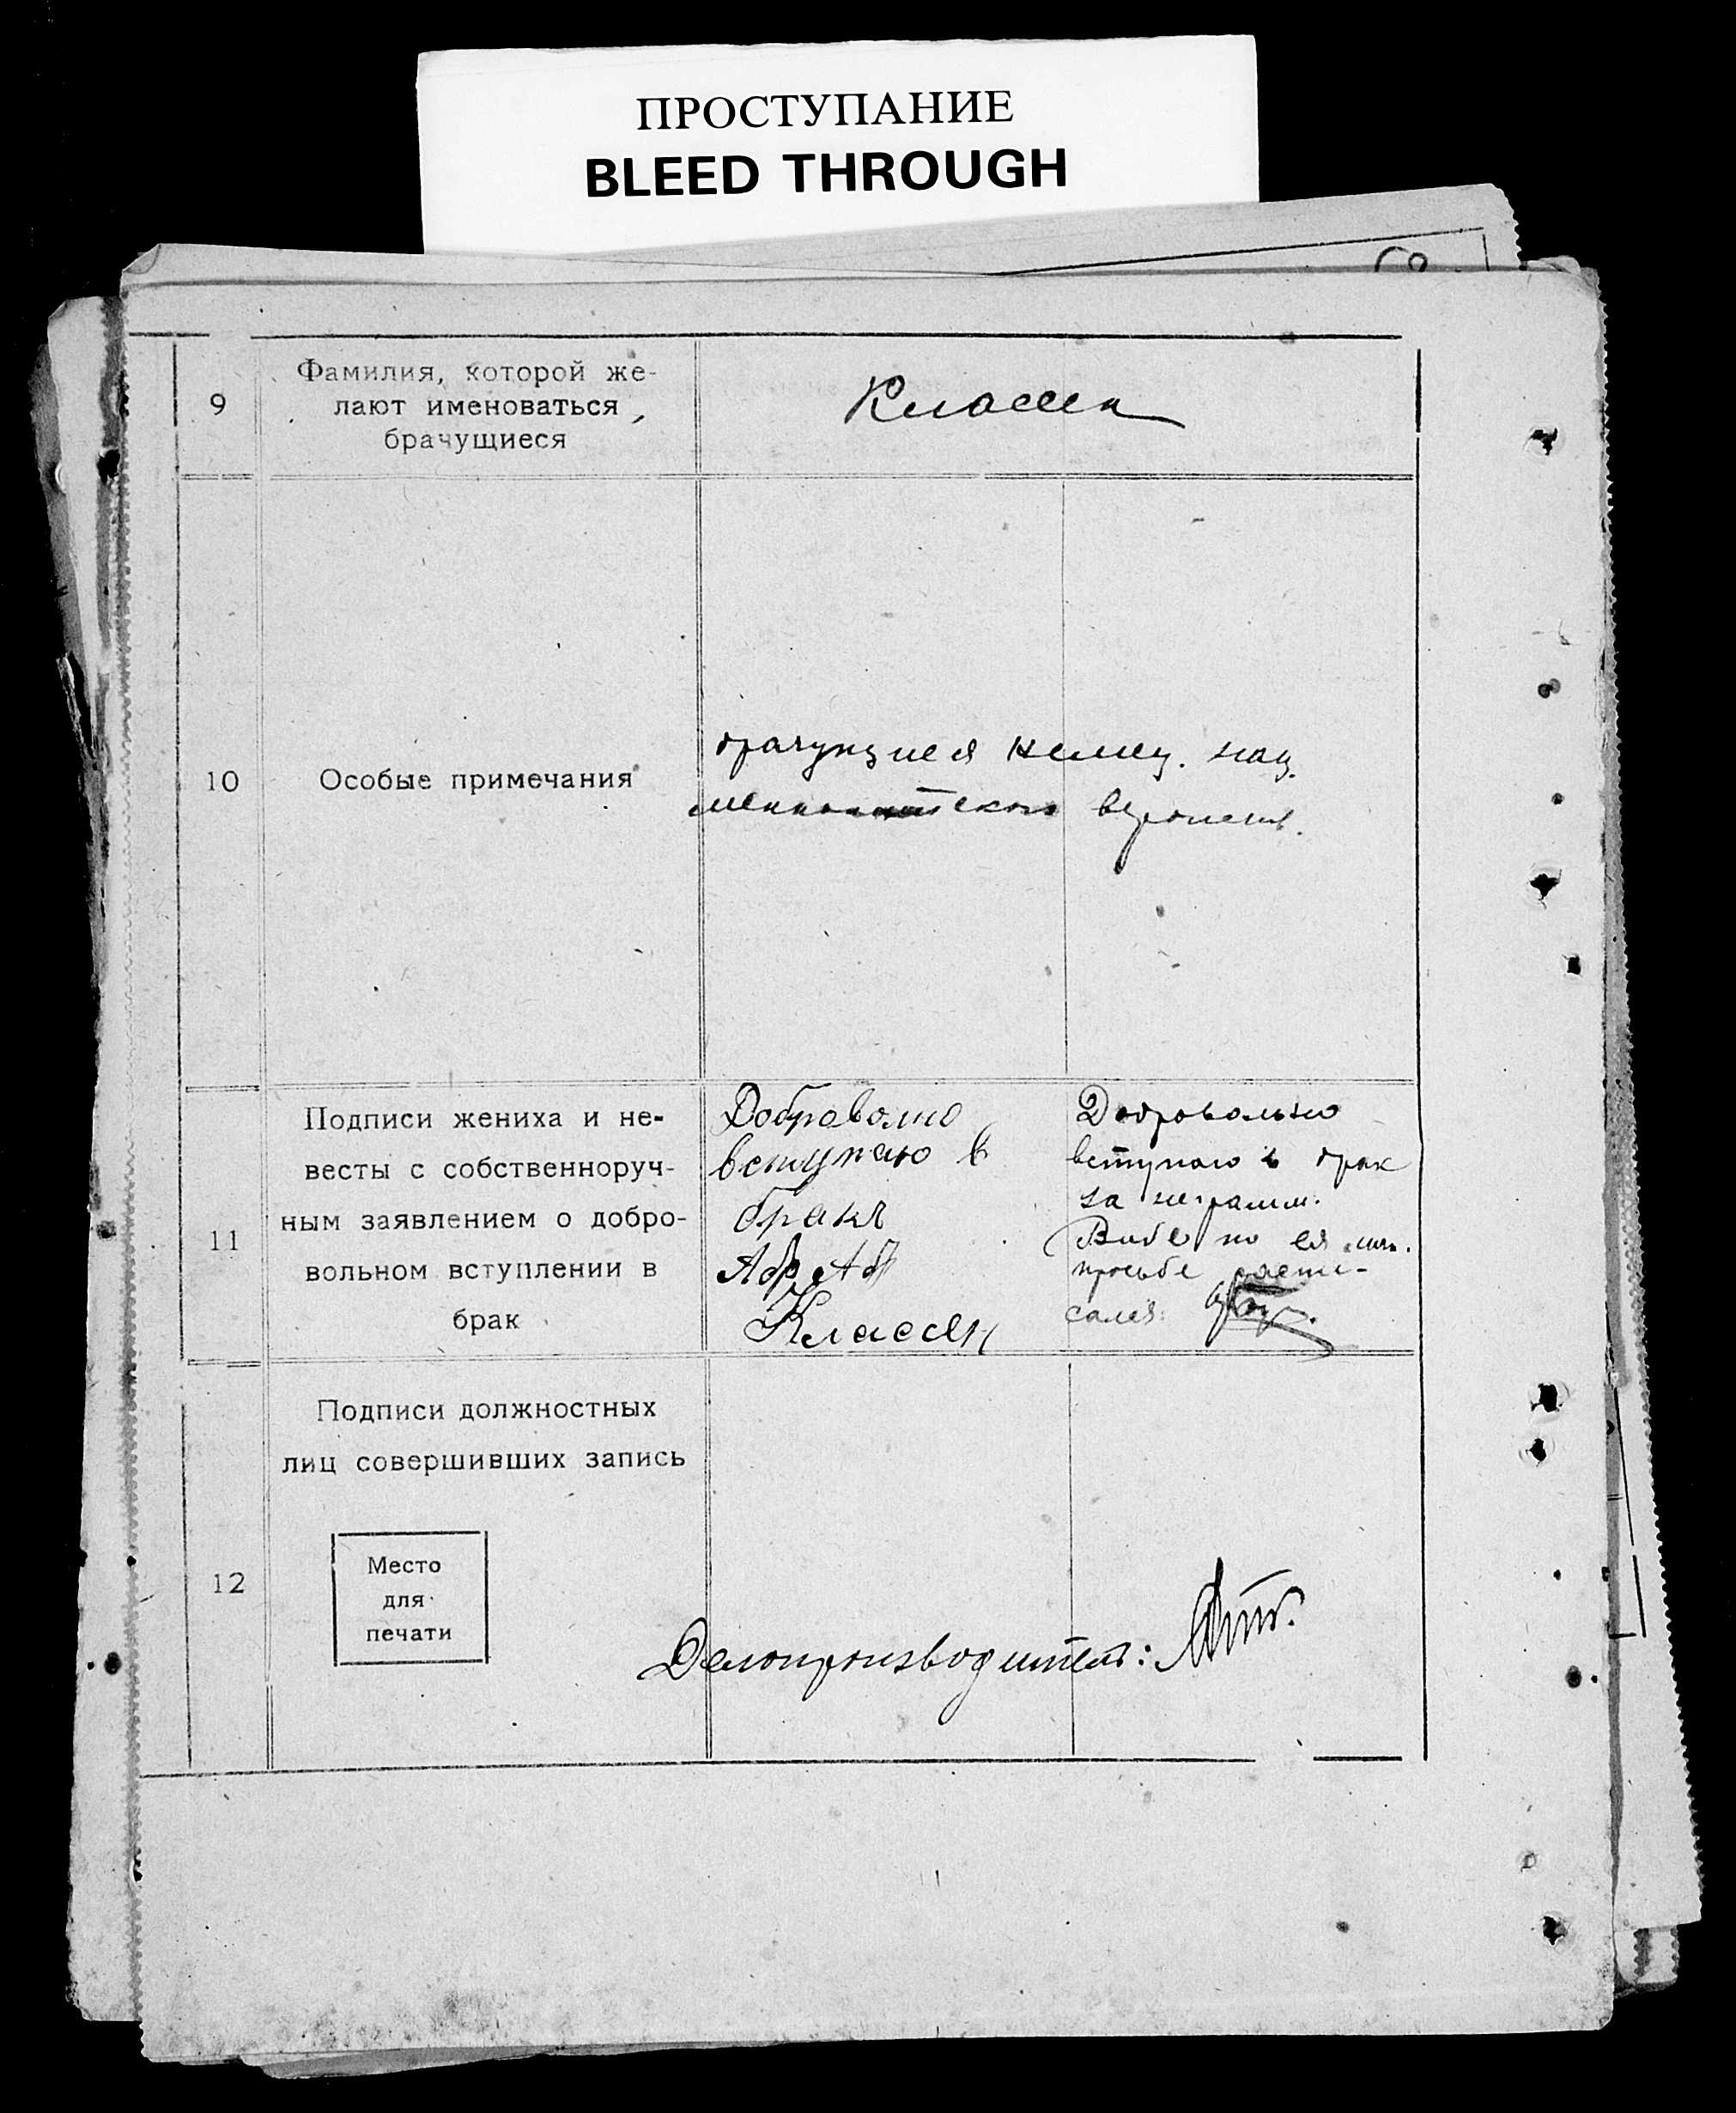 ПРОСТУПАНИЕ
BLEED THROUGH
9
Фамилия, которой же-
лают именоваться
брачущиеся
Классен
10
Особые примечания
брачущиеся немец. нац.
меннонитского вероисп.
11
Подписи жениха и не-
весты с собственноруч-
ным заявлением о добро-
вольном вступлении в
брак
Доброволно
вступаю в
бракъ
Абр. Аб
Классен
Добровольно
вступаю в брак
за неграмм.
Вибе по ея личн.
просьбе распи-
сался:
12
Подписи должностных
лиц совершивших запись
Место
для
печати
Делопроизводитель: